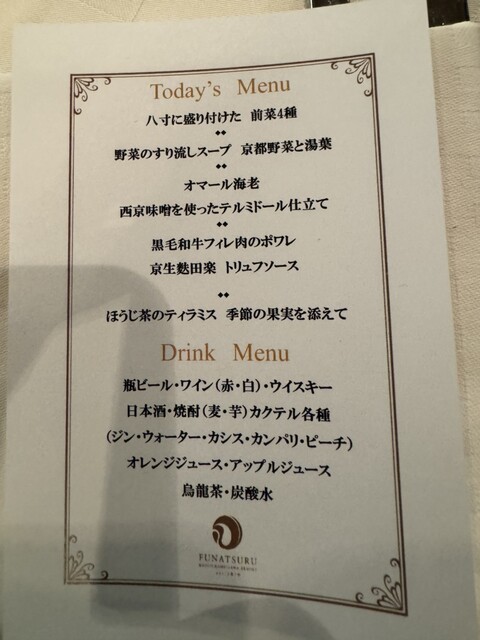 Today's Menu
八寸に盛り付けた 前菜4種
野菜のすり流しスープ 京都野菜と湯葉
オマール海老
西京味噌を使ったテルミドール仕立て
黒毛和牛フィレ肉のポワレ
京生麩田楽 トリュフソース
ほうじ茶のティラミス 季節の果実を添えて
Drink Menu
瓶ビール・ワイン(赤・白)・ウイスキー
日本酒・焼酎(麦・芋)カクテル各種
(ジン・ウォーター・カシス・カンパリ・ピーチ)
オレンジジュース・アップルジュース
烏龍茶・炭酸水
FUNATSURU